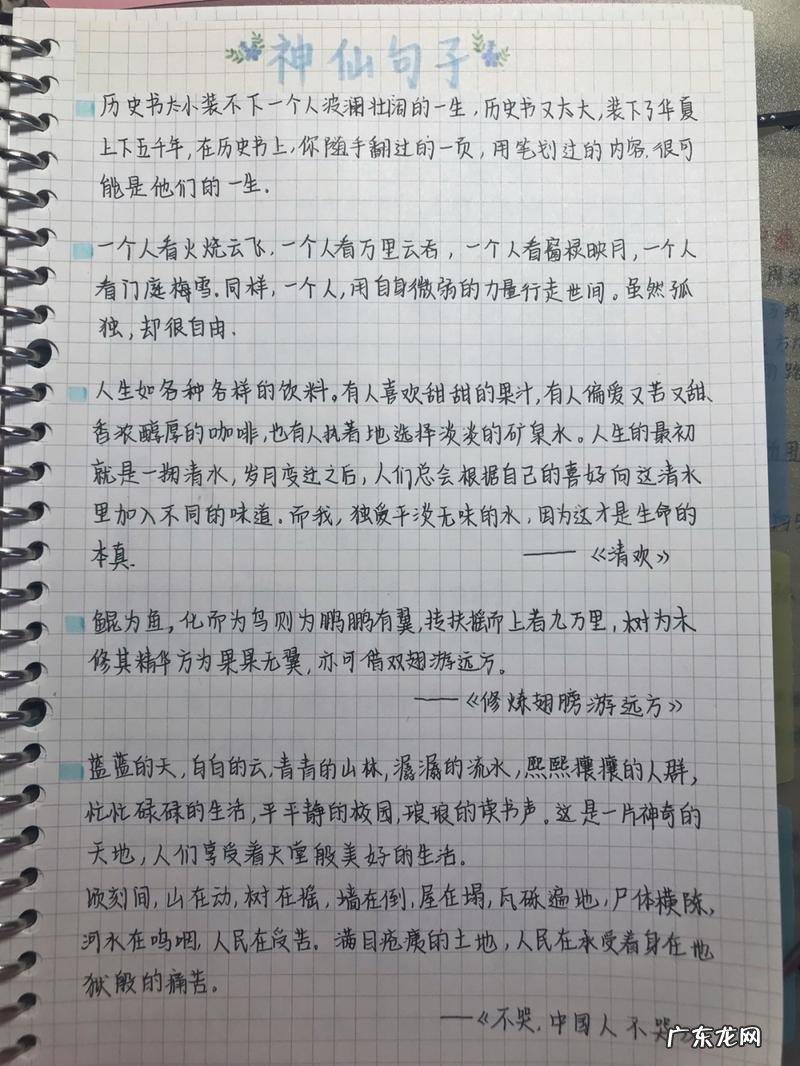 神仙句子
历史书太小装不下一个人波澜壮阔的一生,历史书又太大,装下了华夏
上下五千年,在历史书上,你随手翻过的一页,用笔划过的内容.很可
能是他们的一生.
一个人看火烧云飞,一个人看万里云吞,一个人看窗棂映月,一个人
看门庭梅雪.同样,一个人,用自身微弱的力量行走世间。虽然孤
独,却很自由.
人生如各种各样的饮料。有人喜欢甜甜的果汁,有人偏爱又苦又甜、
香浓醇厚的咖啡,也有人执著地选择淡淡的矿泉水。人生的最初
就是一掬清水,岁月变迁之后,人们总会根据自己的喜好向这清水
里加入不同的味道.而我,独爱平淡无味的水,因为这才是生命的
本真.
——《清欢》
鲲为鱼,化而为鸟则为鹏鹏有翼,抟扶摇而上者九万里,树为木
修其精华方为果果无翼,亦可借双翅游远方。
——《修炼翅膀游远方》
蓝蓝的天,白白的云,青青的山林,潺潺的流水,熙熙攘攘的人群,
忙忙碌碌的生活,平平静的校园,琅琅的读书声。这是一片神奇的
天地,人们享受着天堂般美好的生活。
顷刻间,山在动,树在摇,墙在倒,屋在塌,瓦砾遍地,尸体横陈,
河水在呜咽,人民在受苦。满目疮痍的土地,人民在承受着身在地
狱般的痛苦。
——《不哭.中国人不哭》
广东龙网